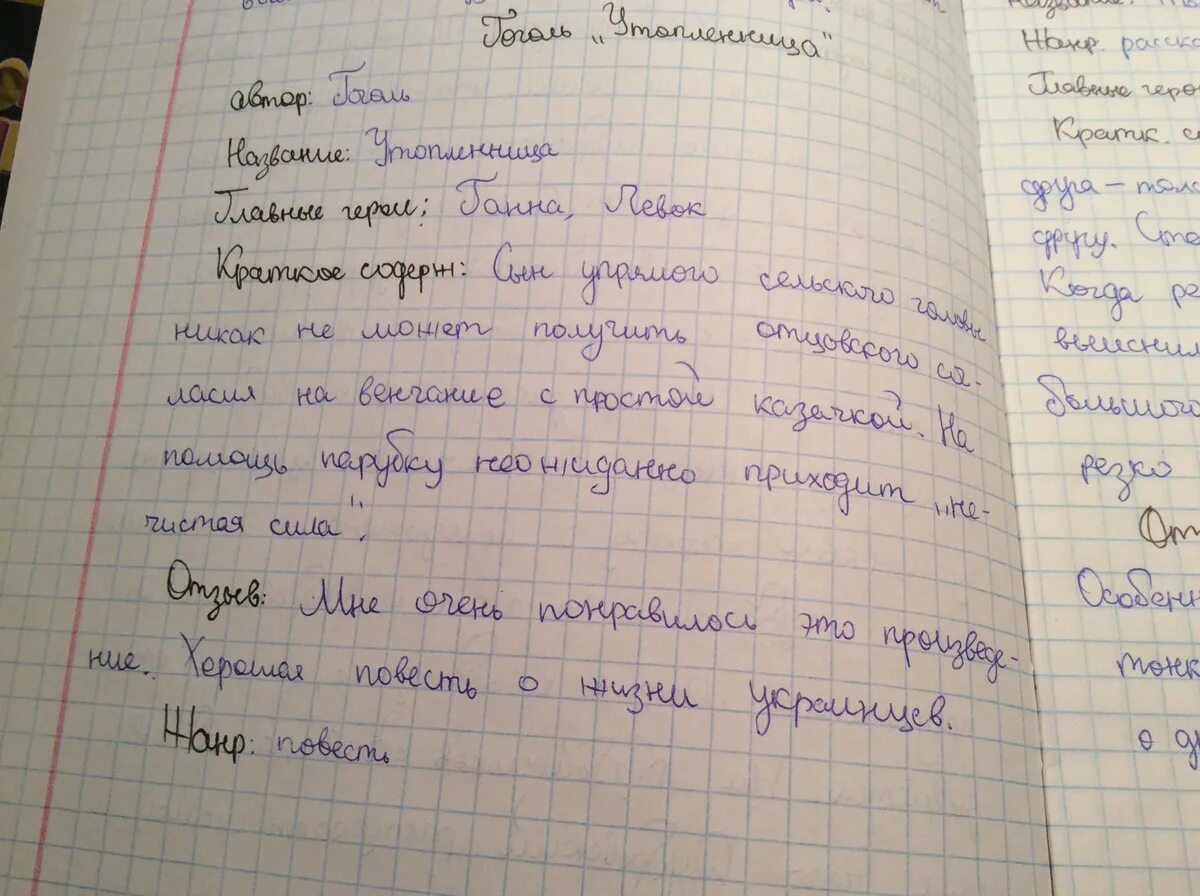 Гоголь „Утопленница"
автор: Гоголь
Название: Утопленница
Главные герои: Ганна, Левок
Краткое содерж: Сын упрямого сельского головы
никак не может получить отцовского со-
ласия на венчание с простой казачкой. На
помощь парубку неожиданно приходит „не-
чистая сила".
Отзыв: Мне очень понравилось это произведе-
ние. Хорошая повесть о жизни украинцев.
Жанр: повесть
Жанр. расска
Главные геро
Кратк. с
друга – толс
другу.
Когда ре
выяснил
большого
резко
От
Особенн
тонк
о др